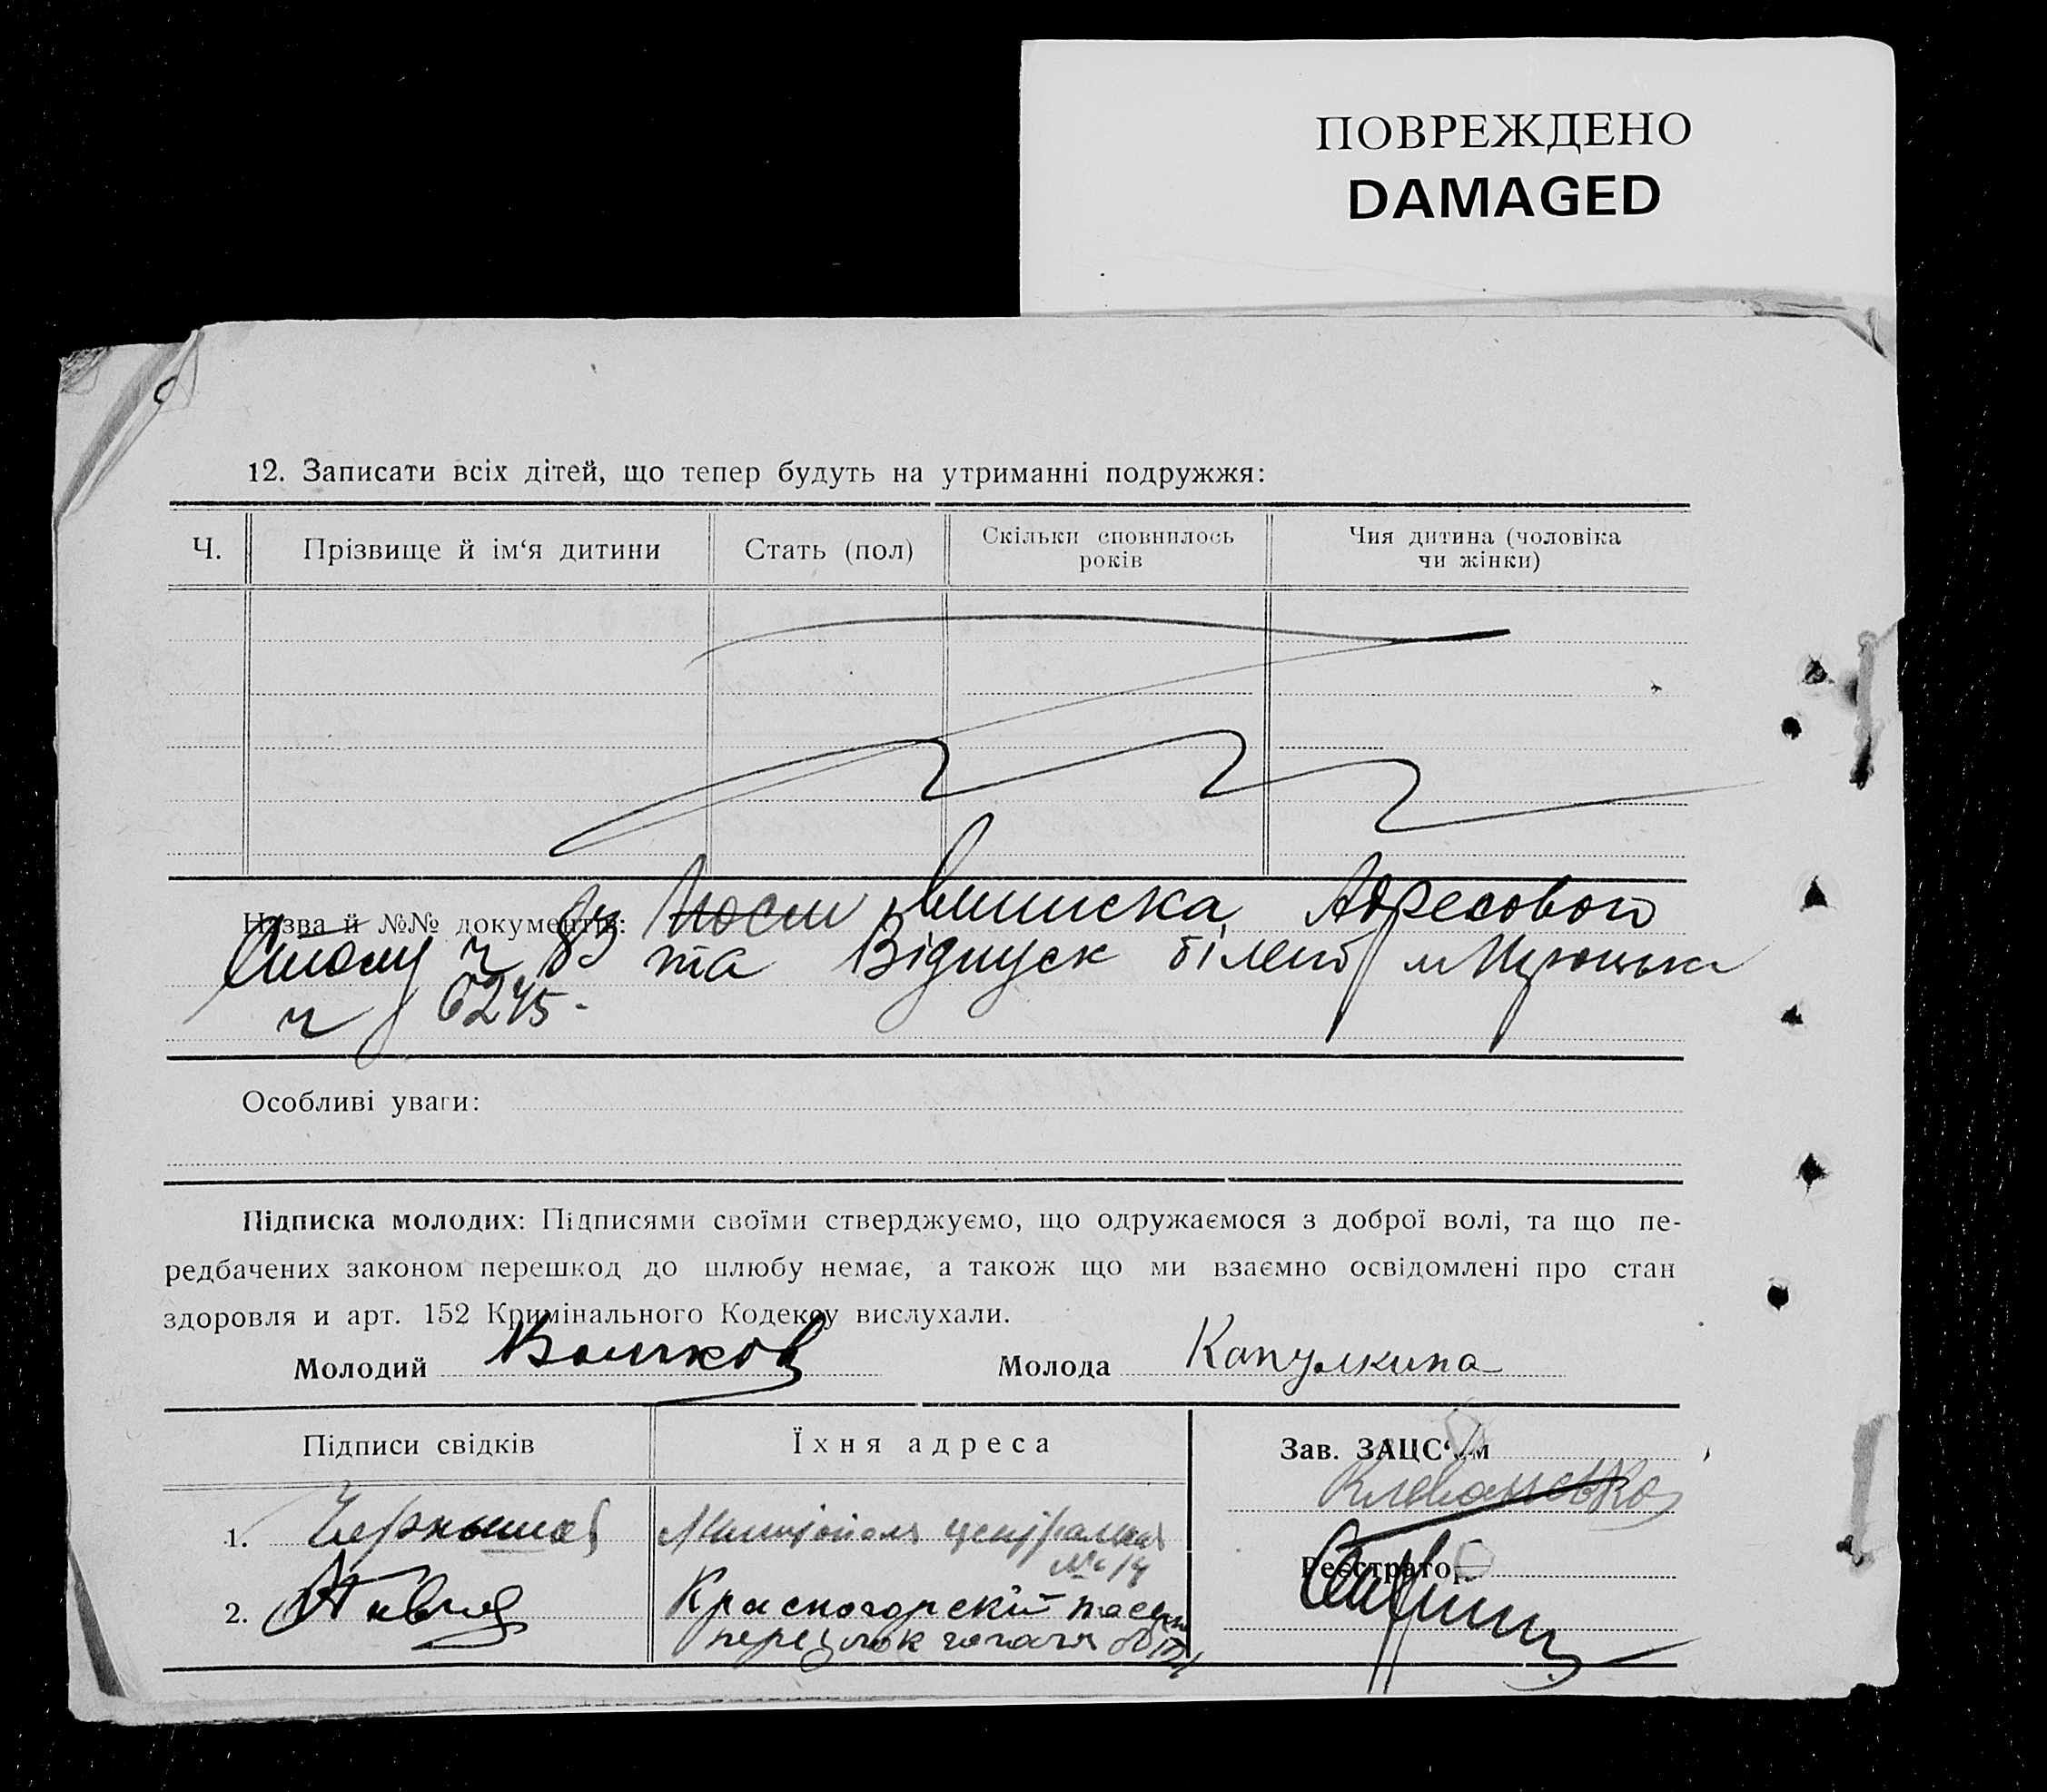 ПОВРЕЖДЕНО
DAMAGED
12. Записати всіх дітей, що тепер будуть на утриманні подружжя:
Ч.
Прізвище й ім‘я дитини
Стать (пол)
Скільки сповнилось
років
Чия дитина (чоловіка
чи жінки)
Назва й №№ документів: Виписка Адресового
Столу ч 83 та Відпуск білет м
ч 6245-
Особливі уваги:
Підписка молодих: Підписями своїми стверджуємо, що одружаємося з доброї волі, та що пе-
редбачених законом перешкод до шлюбу немає, а також що ми взаємно освідомлені про стан
здоровля и арт. 152 Кримінального Кодексу вислухали.
Молодий Волков Молода Капулкина
Підписи свідків
Їхня адреса
Зав. ЗАЦС‘ом
1.
№ 14
2. Красногорскій
Реєстратор